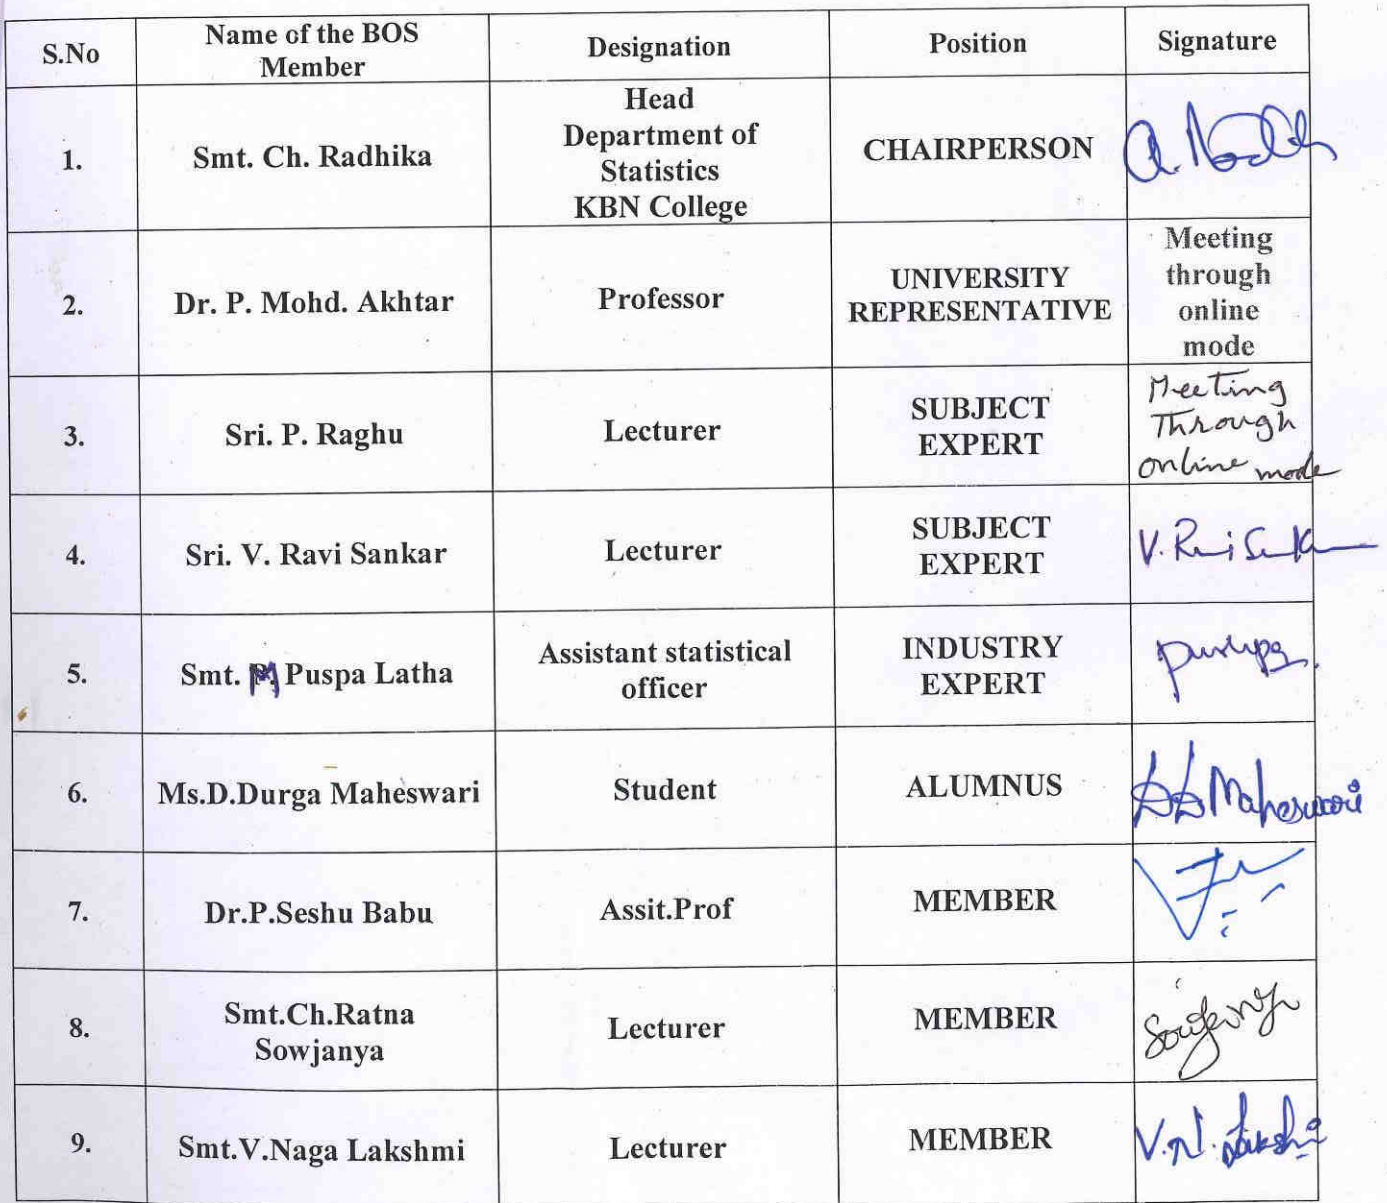 S.No
Name of the BOS
Member
Designation
Position
Signature
1.
Smt. Ch. Radhika
Head
Department of
Statistics
KBN College
CHAIRPERSON
2.
Dr. P. Mohd. Akhtar
Professor
UNIVERSITY
REPRESENTATIVE
Meeting
through
online
mode
3.
Sri. P. Raghu
Lecturer
SUBJECT
EXPERT
Meeting
Through
online mode
4.
Sri. V. Ravi Sankar
Lecturer
SUBJECT
EXPERT
V. Ravi Sankar
5.
Smt. M Puspa Latha
Assistant statistical
officer
INDUSTRY
EXPERT
puspa
6.
Ms.D.Durga Maheswari
Student
ALUMNUS
DD Maheswari
7.
Dr.P.Seshu Babu
Assit.Prof
MEMBER
8.
Smt.Ch.Ratna
Sowjanya
Lecturer
MEMBER
Sowjanya
9.
Smt.V.Naga Lakshmi
Lecturer
MEMBER
V.N. Lakshmi